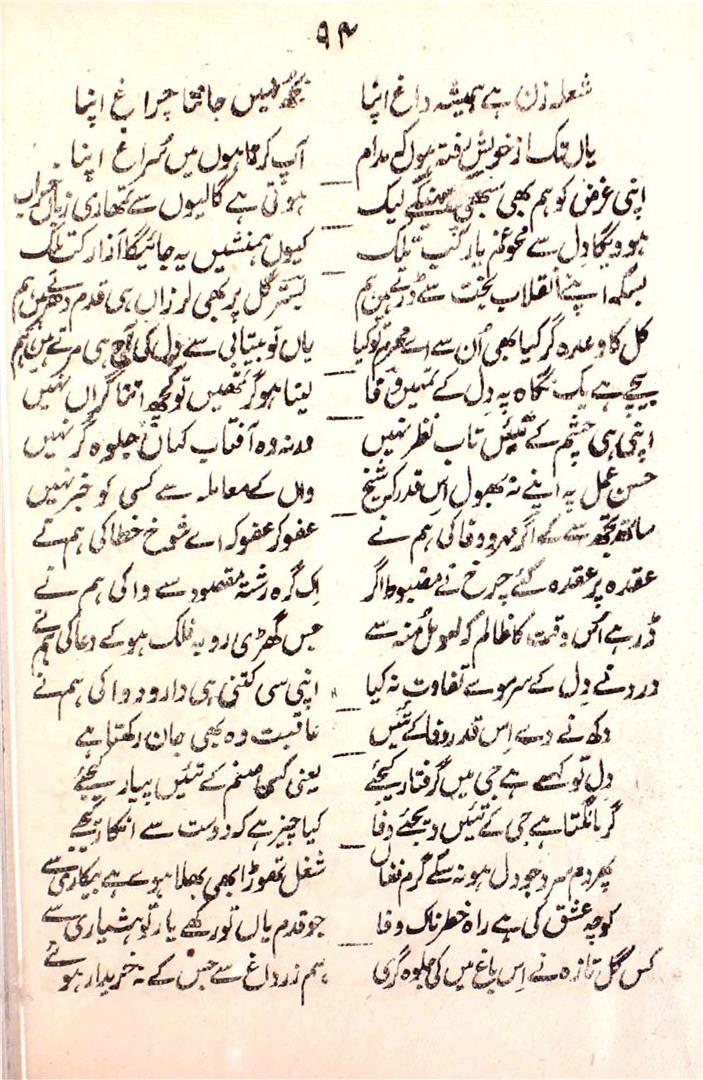 ۹۴
شعلہ زن ہے ہمیشہ داغ اپنا بجھ نہیں جانتا چراغ اپنا
یاں تک از خویش رفتہ ہوں کہ مدام آپ کرتا ہوں میں سُراغ اپنا
اپنی غرض کو ہم بھی سبھی لیک ہوتی ہے گالیوں سے تمھاری زباں خراب
ہوویگا دل سے محو غم یار کب تلک کیوں ہمنشیں یہ جائیگا آزار کب تلک
بسکہ اپنے انقلاب بخت سے ڈرتے ہیں ہم بسترِ گل پر بھی لرزاں ہی قدم دھرتے ہیں ہم
کل کا وعدہ گر کیا بھی اُن سے اے محرم تو کیا یاں تو بیتابی سے دل کی آج ہی مرتے ہیں ہم
بیچے ہے یک نگاہ پہ دل کے تئیں وفا لینا ہو گر تمھیں تو کچھ اتنا گراں نہیں
اپنی ہی چشم کے تئیں تاب نظر نہیں ورنہ وہ آفتاب کہاں جلوہ گر نہیں
حسن عمل پہ اپنے نہ بھول اس قدر کہ شیخ واں کے معاملہ سے کسی کو خبر نہیں
ساتھ تجھ سے کے اگر مہر و وفا کی ہم نے عفو کر عفو کہ اے شوخ خطا کی ہم نے
عقدہ پر عقدہ گئے چرخ نے مضبوط اگر اک گرہ رشتۂ مقصود سے وا کی ہم نے
ڈر ہے اُس وقت کا ظالم کہ لہو مل مُنہ سے جس گھڑی رو بہ فلک ہو کے دعا کی ہم نے
درد نے دل کے سر مو سے تفاوت نہ کیا اپنی سی کتنی ہی دارو و دوا کی ہم نے
دکھ نے دے اس قدر وفا کے تئیں عاقبت وہ بھی جان رکھتا ہے
دل تو کہے ہے جی میں گرفتار کیجئے یعنی کسی صنم کے تئیں پیار کیجئے
گر مانگتا ہے جی کے تئیں دیجئے وفا کیا چیز ہے کہ دوست سے انکار کیجئے
پھر دم سرد جو دل ہو نہ سکے گرم فغاں شغل تھوڑا بھی بھلا ہووے ہے بیکاری سے
کوچہ عشق کی ہے راہ خطرناک وفا جو قدم یاں تو رکھے یار تو ہشیاری سے
کس گل تازہ نے اس باغ میں کی جلوہ گری ہم زر داغ سے جس کے نہ خریدار ہوئے